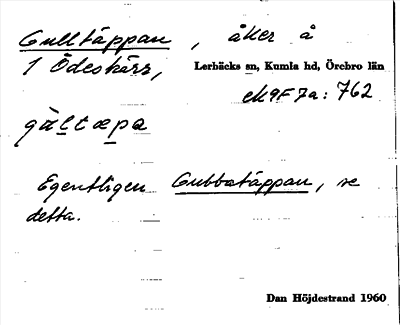 Gulltäppan, åker å
1 Ödeskärr, Lerbäcks sn, Kumla hd, Örebro län
9F 7a: 762
Egentligen Gubbatäppan, se
detta.
Dan Höjdestrand 1960